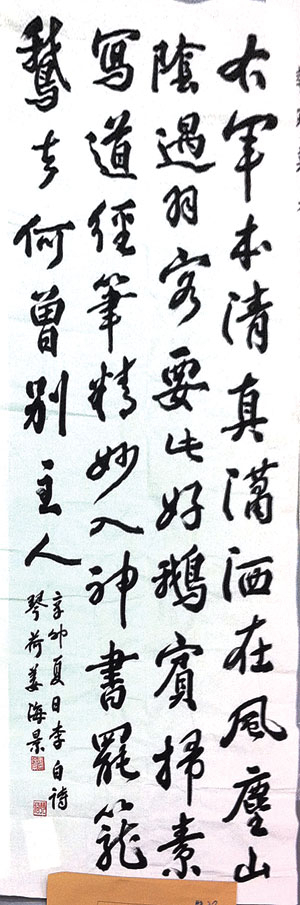 右軍本清真瀟洒在風塵山
陰遇羽客要此好鵝賓掃素
寫道經筆精妙入神書罷籠
鵞去何曾別主人
辛卯夏日李白詩
琴荷姜海景